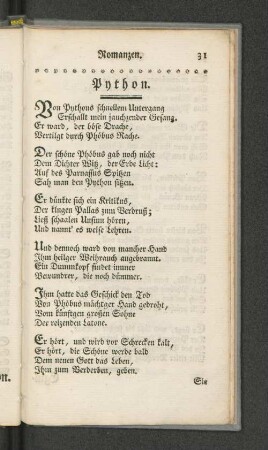 Romanzen. 31
Python.
Von Pythons schnellem Untergang
Erschallt mein jauchzender Gesang.
Er ward, der böse Drache,
Vertilgt durch Phöbus Rache.
Der schöne Phöbus gab noch nicht
Dem Dichter Witz, der Erde Licht:
Auf des Parnassus Spitzen
Sah man den Python sitzen.
Er dünkte sich ein Kritikus,
Der klugen Pallas zum Verdruß;
Ließ schaalen Unsinn hören,
Und nannt' es weise Lehren.
Und dennoch ward von mancher Hand
Ihm heilger Weihrauch angebrannt.
Ein Dummkopf findet immer
Bewundrer, die noch dümmer.
Ihm hatte das Geschick den Tod
Von Phöbus mächtger Hand gedroht,
Vom künftigen großen Sohne
Der reizenden Latone.
Er hört, und wird vor Schrecken kalt,
Er hört, die Schöne werde bald
Dem neuen Gott das Leben,
Ihm zum Verderben, geben.
Sie
on.